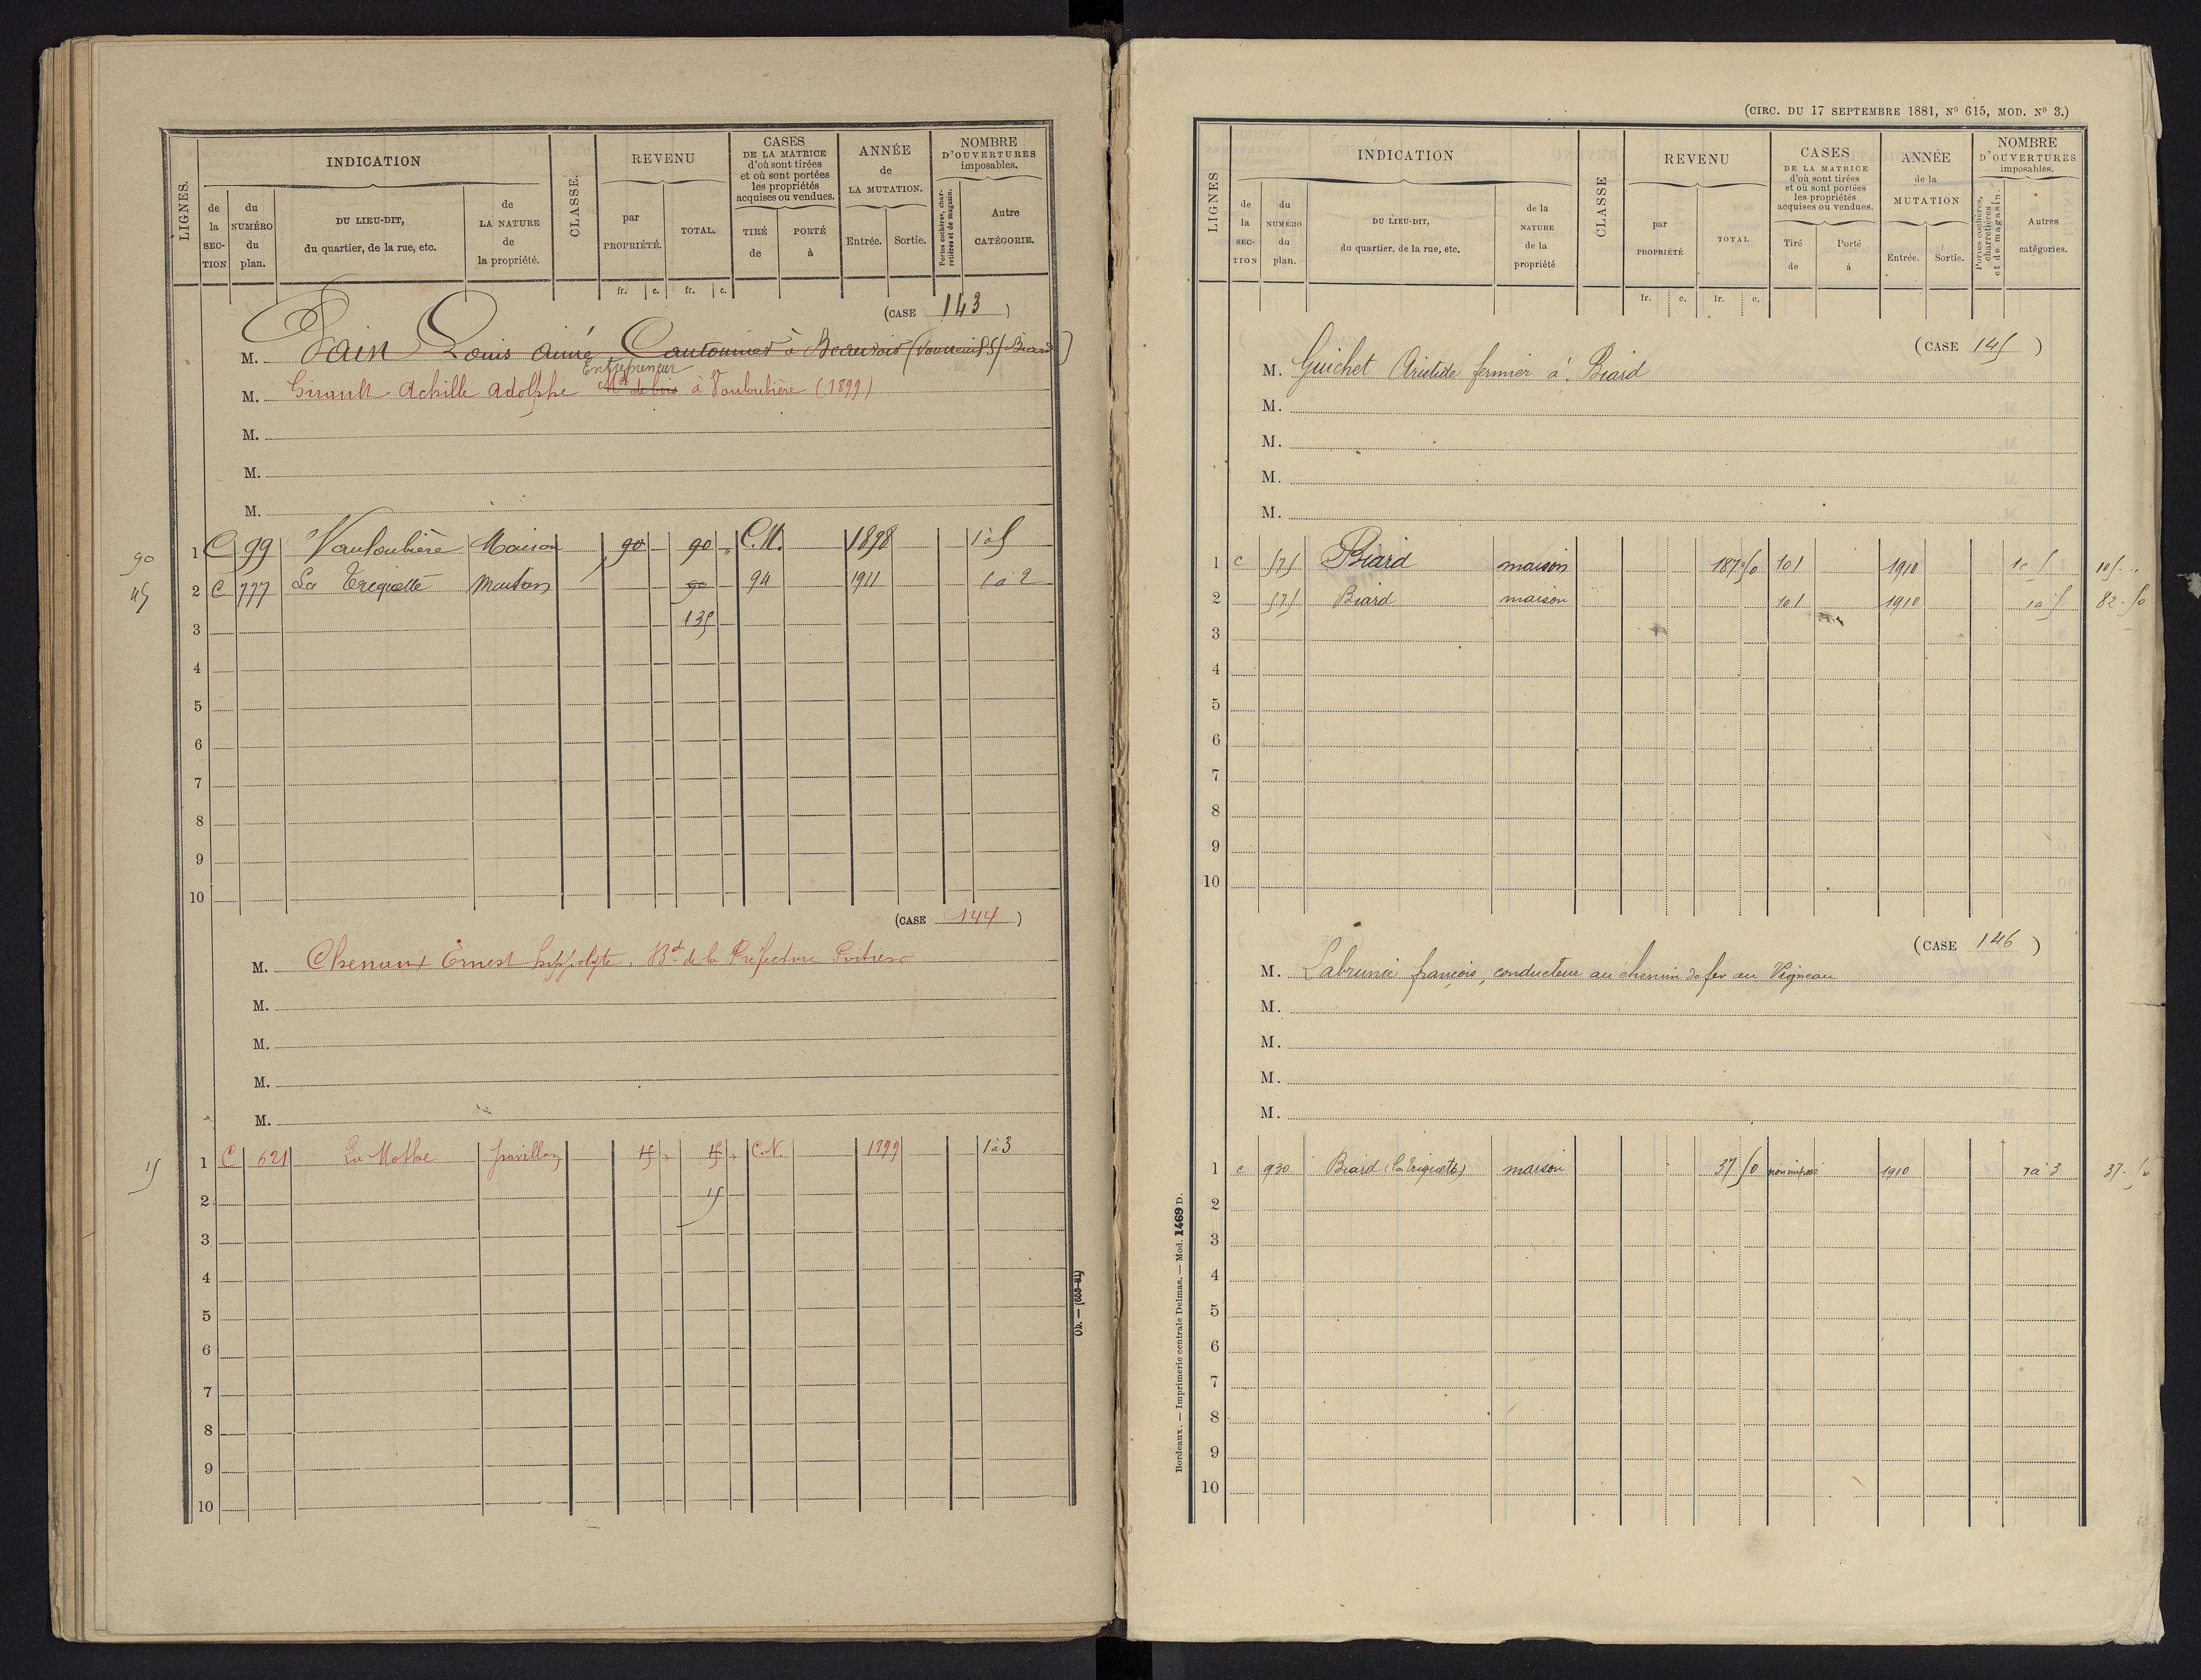 LIGNES.
INDICATION
de la SECTION
du NUMÉRO du plan.
DU LIEU-DIT, du quartier, de la rue, etc.
de LA NATURE de la propriété.
CLASSE.
REVENU
par PROPRIÉTÉ.
TOTAL.
fr. c. fr. c.
CASES DE LA MATRICE d'où sont tirées et où sont portées les propriétés acquises ou vendues.
TIRÉ de
PORTÉ à
ANNÉE de LA MUTATION.
Entrée. Sortie.
NOMBRE D'OUVERTURES imposables.
Portes cochères, charretières et de magasin.
Autre CATÉGORIE.
(CASE 143)
M. Pain Louis Aimé Cantonnier à Beauvoir (Vouneuil S/ Biard)
Entrepreneur
M. Girault Achille Adolphe Md de bois à Vauloubière (1899)
M.
M.
M.
90 1 C 99 Vauloubière Maison 90 90 C.N. 1898 1 à 5
45 2 C 777 La Treguelle Maison 90 94 1911 1 à 2
3 135
4
5
6
7
8
9
10
(CASE 144)
M. Chenaux Ernest hippolyte, Bd de la Préfecture Poitiers
M.
M.
M.
M.
15 1 C 621 La Mothe pavillon 45 45 C.N. 1899 1 à 3
2 15
3
4
5
6
7
8
9
10
Ob. — (658-81)
(CIRC. DU 17 SEPTEMBRE 1881, No 615, MOD. No 3.)
LIGNES
INDICATION
de la SECTION
du NUMÉRO du plan.
DU LIEU-DIT, du quartier, de la rue, etc.
de la NATURE de la propriété
CLASSE
REVENU
par PROPRIÉTÉ
TOTAL
fr. c. fr. c.
CASES DE LA MATRICE d'où sont tirées et où sont portées les propriétés acquises ou vendues.
Tiré de
Porté à
ANNÉE de la MUTATION
Entrée. Sortie.
NOMBRE D'OUVERTURES imposables.
Portes cochères, charretières et de magasin.
Autres catégories.
(CASE 145)
M. Guichet Aristide fermier à Biard
M.
M.
M.
M.
1 C 575 Biard maison 187 50 101 1910 105
2 575 Biard maison 101 1910 1 à 5 82-50
3
4
5
6
7
8
9
10
(CASE 146)
M. Labrunie françois, conducteur au chemin de fer au Vigneau
M.
M.
M.
M.
1 c 920 Biard maison 37 50 non imposé 1910 1 à 3 37-50
2
3
4
5
6
7
8
9
10
Bordeaux. — Imprimerie centrale Delmas. — Mod. 1469 D.